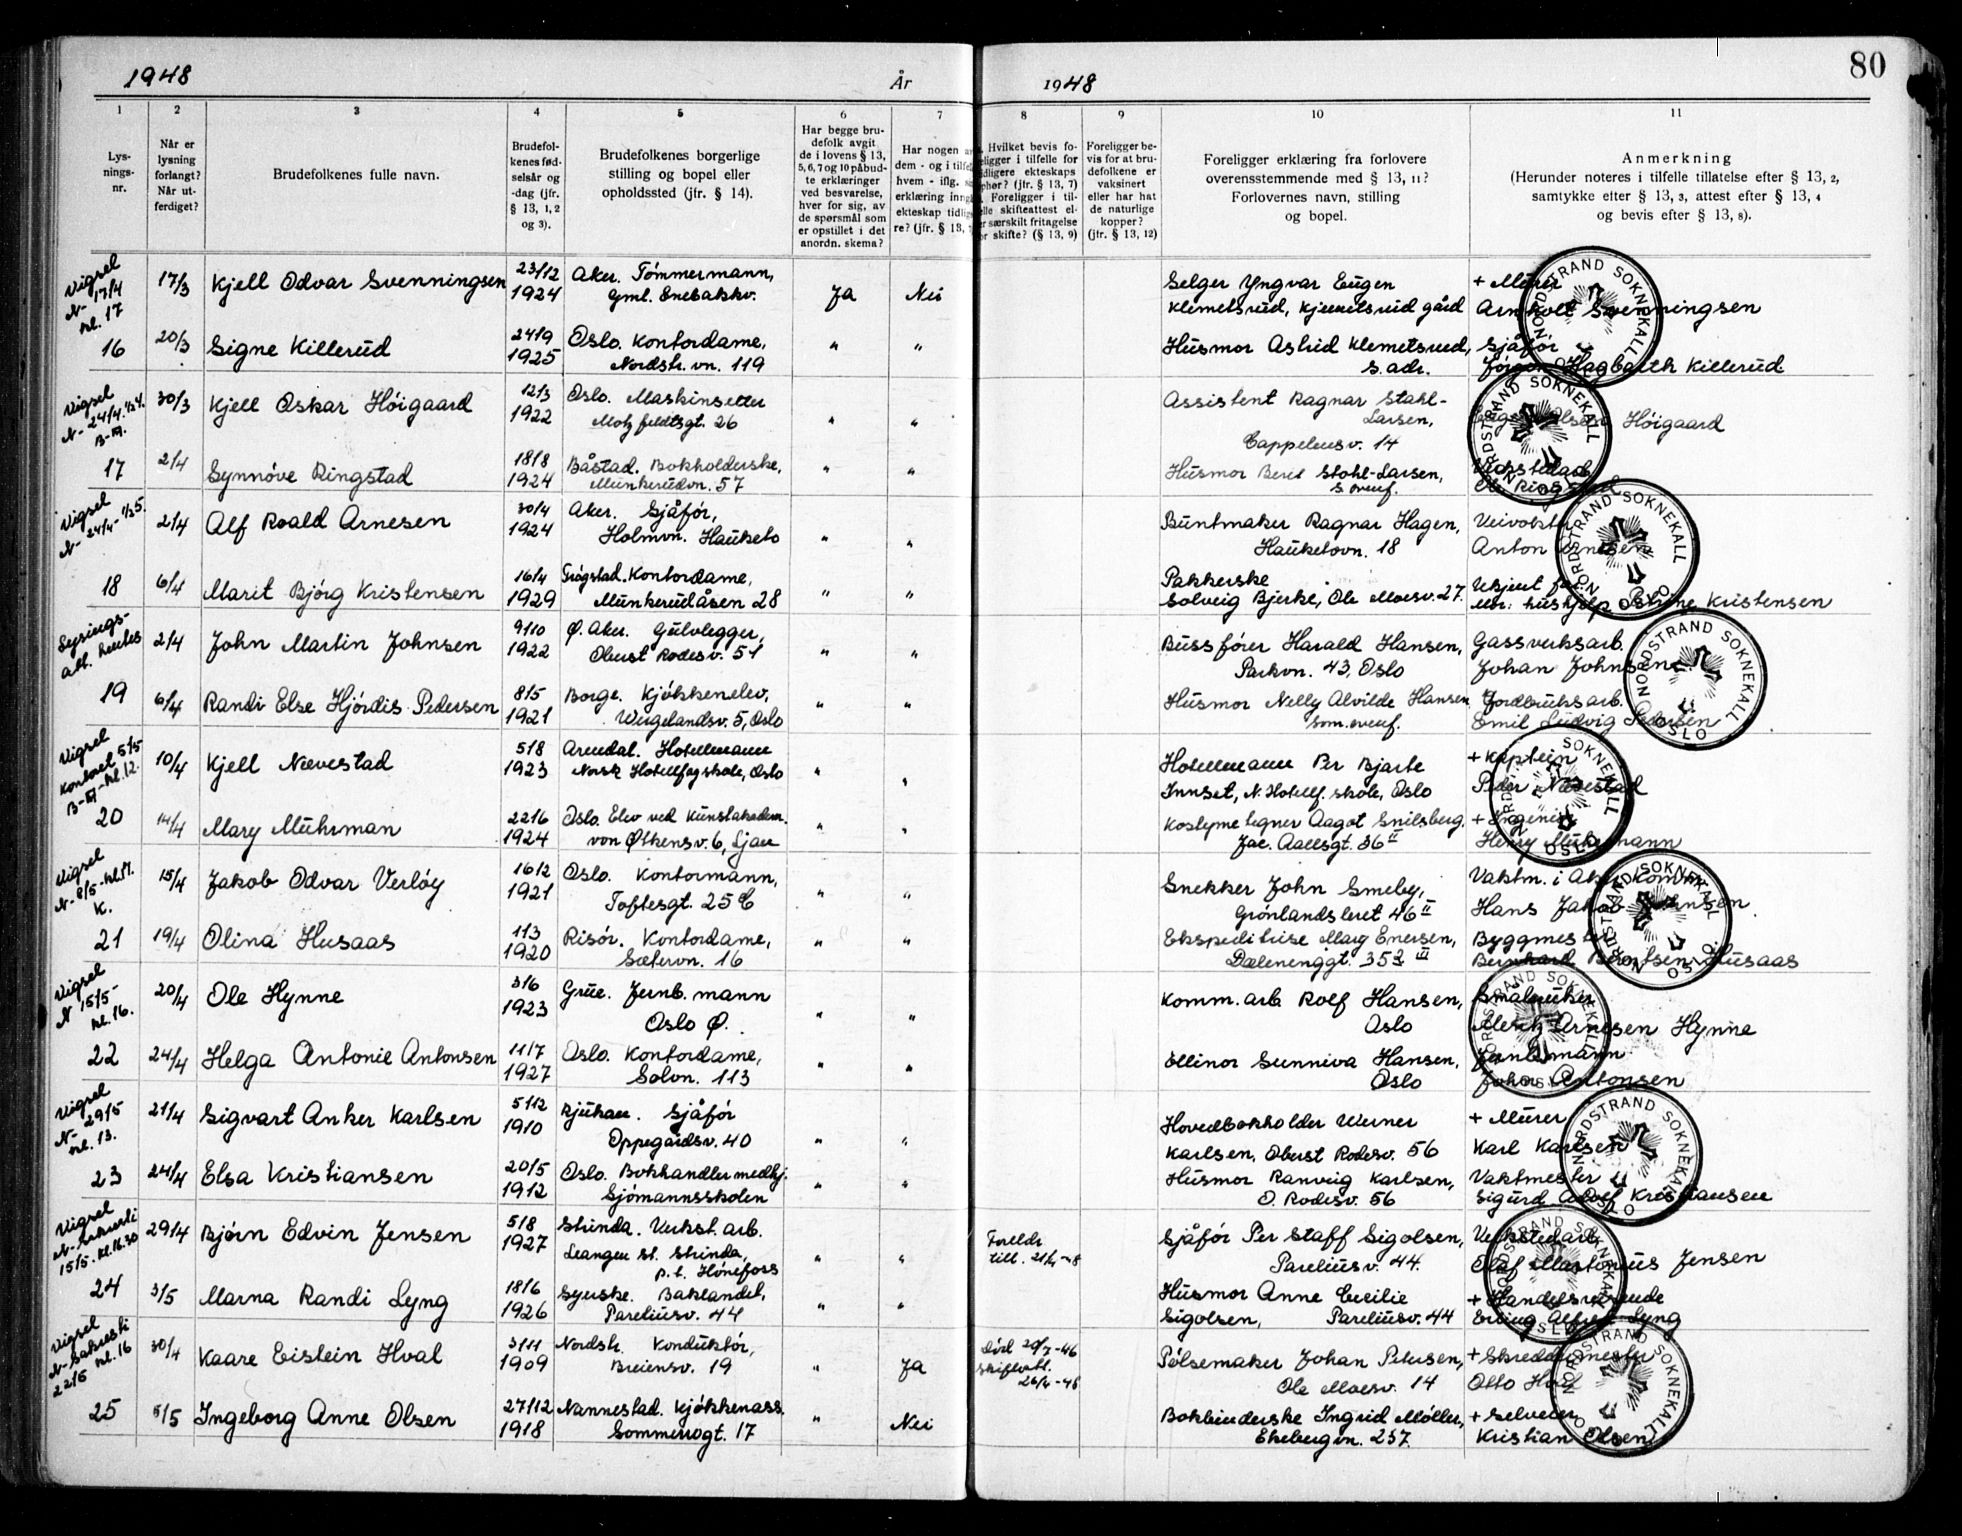 1948 År
1948
80
1
2
3
4
5
6
7
8
9
10
11
Lys-
nings-
nr.
Når er
lysning
forlangt?
Når ut-
ferdiget?
Brudefolkenes fulle navn.
Brudefol-
kenes fød-
selsår og
-dag (jfr.
§ 13, 1, 2
og 3).
Brudefolkenes borgerlige
stilling og bopel eller
opholdssted (jfr. § 14).
Har begge bru-
defolk avgit
de i lovens § 13,
5, 6, 7 og 10 påbud-
te erklæringer
ved besvarelse,
hver for sig, av
de spørsmål som
er opstillet i det
anordn. skema?
Har nogen a
dem - og i tilfe
hvem - iflg. s
erklæring inng
ekteskap tidlig
re? (jfr. § 13,
Hvilket bevis fo-
eligger i tilfelle for
idligere ekteskaps
phør? (jfr. § 13, 7)
Foreligger i til-
elle skifteattest el-
r særskilt fritagelse
or skifte? (§ 13, 9)
Foreligger be-
vis for at bru-
defolkene er
vaksinert
eller har hat
de naturlige
kopper?
(jfr. § 13, 12)
Foreligger erklæring fra forlovere
overensstemmende med § 13, 11?
Forlovernes navn, stilling
og bopel.
Anmerkning
(Herunder noteres i tilfelle tillatelse efter § 13, 2,
samtykke efter § 13, 3, attest efter § 13, 4
og bevis efter § 13, 8).
Vigsel
N- 17/4
kl. 17
17/3 Kjell Odvar Svenningsen 23/12
1924 Aker. Tömmermann,
Gml. Enebakkv. Ja Nei
Selger Yngvar Eugen
Klemetsrud, Kjemetsrud gård
+ Murer
Arnholt Svenningsen
16 20/3 Signe Killerud 24/9
1925 Oslo. Kontordame,
Nordstr. vn. 119 " "
Husmor Astrid Klemetsrud,
s. adr.
Sjåfør
Jörgen Hagbarth Killerud
Vigsel
N- 24/4
30/3 Kjell Oskar Höigaard 12/3
1922 Oslo. Maskinsetter
Motzfeldtsgt. 26 " "
Assistent Ragnar Stahl-
Larsen,
Cappelensv. 14
Höigaard
17 2/4 Synnöve Ringstad 18/8
1924 Båstad. Bokholderske,
Munkerudvn. 57 " "
Husmor Berit Stahl-Larsen,
s. ovenf.
Vigsel
N- 24/4
2/4 Alf Roald Arnesen 30/4
1924 Aker. Sjåför,
Holmvn. Hauketo " "
Buntmaker Ragnar Hagen,
Hauketovn. 18
Veivokter
Anton Arnesen
18 6/4 Marit Bjórg Kristensen 16/4
1929 Trögstad. Kontordame,
Munkerudåsen 28 " "
Pakkerske
Solveig Bjerke, Ole Moesv. 27.
Ukjent far
Kristensen
Lysings-
att. hentes
2/4 John Martin Johnsen 9/10
1922 Ö. Aker. Gulvlegger,
Oberst Rodesv. 51 " "
Bussförer Harald Hansen,
Parkvn. 43, Oslo
Gassverksarb.
Johan Johnsen
19 6/4 Randi Else Hjördis Pedersen 8/5
1921 Borge. Kjökkenelev,
Wergelandsv. 5, Oslo " "
Husmor Nelly Alvilde Hansen
som ovenf.
Jordbruksarb.
Emil Ludvig Pedersen
Vigsel
Kontoret 5/5
B-III-kl. 12.
10/4 Kjell Nævestad 5/8
1923 Arendal. Hotellmann
Norsk Hotellfagskole, Oslo " "
Hotellmann Per Bjarte
Innset, N. Hotellf. skole, Oslo
+ Kaptein
Peder Nævestad
20 14/4 Mary Muhrman 22/6
1924 Oslo. Elev ved Kunstakadem.
von Øtkensv. 6, Ljan " "
Kostymetegner Aagot Snilsberg.
Jac. Aallsgt. 36 II
+ Ingeniör
Henry
Vigsel
N- 8/5 - kl. 17.
K.
15/4 Jakob Odvar Verlöy 16/2
1921 Oslo. Kontormann,
Toftesgt. 25 C " "
Snekker John Smeby,
Grönlandsleret 46 II
Vaktm. i Aker komm.
Hans Jakob
21 19/4 Olina Husaas 11/3
1920 Risör. Kontordame,
Sætervn. 16 " "
Ekspeditrise Mary Enersen,
Dælenenggt. 35 III
Byggmester
Bernhard Berntsen Husaas
Vigsel
N 15/5-
kl. 16.
20/4 Ole Hynne 3/6
1923 Grue. Jernb. mann
Oslo Ø. " "
Komm. arb. Rolf Hansen,
Oslo
Småbruker
Arnesen Hynne
22 24/4 Helga Antonie Antonsen 11/7
1927 Oslo. Kontordame,
Solvn. 113 " "
Ellinor Sunniva Hansen,
Oslo
Jernb.mann
Johan Antonsen
Vigsel
N- 29/5
kl. 13.
21/4 Sigvart Anker Karlsen 5/12
1910 Rjukan. Sjåför
Oppegårdsv. 40 " "
Hovedbokholder Werner
Karlsen, Oberst Rodesv. 56
+ Murer
Karl Karlsen
23 24/4 Elsa Kristiansen 20/5
1912 Oslo. Bokhandlermedhj.
Sjömannsskolen " "
Husmor Ranveig Karlsen,
O. Rodesv. 56
Vaktmester
Sigurd Adolf Kristiansen
Vigsel
N- Sakristi
15/5. kl. 16.30
29/4 Björn Edvin Jensen 5/8
1927 Strinda. Verkst. arb.
Leangen st. Strinda,
p. t. Hönefoss " "
Foreldr.
till. 21/4-48
Sjåför Per Staff Sigolsen,
Pareliusv. 44.
Verkstedarb.
Olaf Martonius Jensen
24 3/5 Marna Randi Lyng 18/6
1926 Syerske. Baklandet,
Pareliusv. 44 " "
Husmor Anne Cecilie
Sigolsen, Pareliusv. 44
+ Handelsreisende
Erling Alfred Lyng
Vigsel
N- Sakristi
22/5 kl. 16
30/4 Kaare Eistein Hval 3/11
1909 Nordstr. Konduktör,
Breiensv. 19 " Ja
Död 29/7-46
Skifteatt.
26/4-46
Pölsemaker Johan Petersen,
Ole Moesv. 14
+ Skreddermester
Otto Hval
25 5/5 Ingeborg Anne Olsen 27/12
1918 Nannestad. Kjökkenass.
Sommerrogt. 17 " Nei
Bokbinderske Ingrid Möller,
Ekebergvn. 237.
+ Selveier
Kristian Olsen
NORDSTRAND SOKNEKALL OSLO
NORDSTRAND SOKNEKALL OSLO
NORDSTRAND SOKNEKALL OSLO
NORDSTRAND SOKNEKALL OSLO
NORDSTRAND SOKNEKALL OSLO
NORDSTRAND SOKNEKALL OSLO
NORDSTRAND SOKNEKALL OSLO
NORDSTRAND SOKNEKALL OSLO
NORDSTRAND SOKNEKALL OSLO
NORDSTRAND SOKNEKALL OSLO